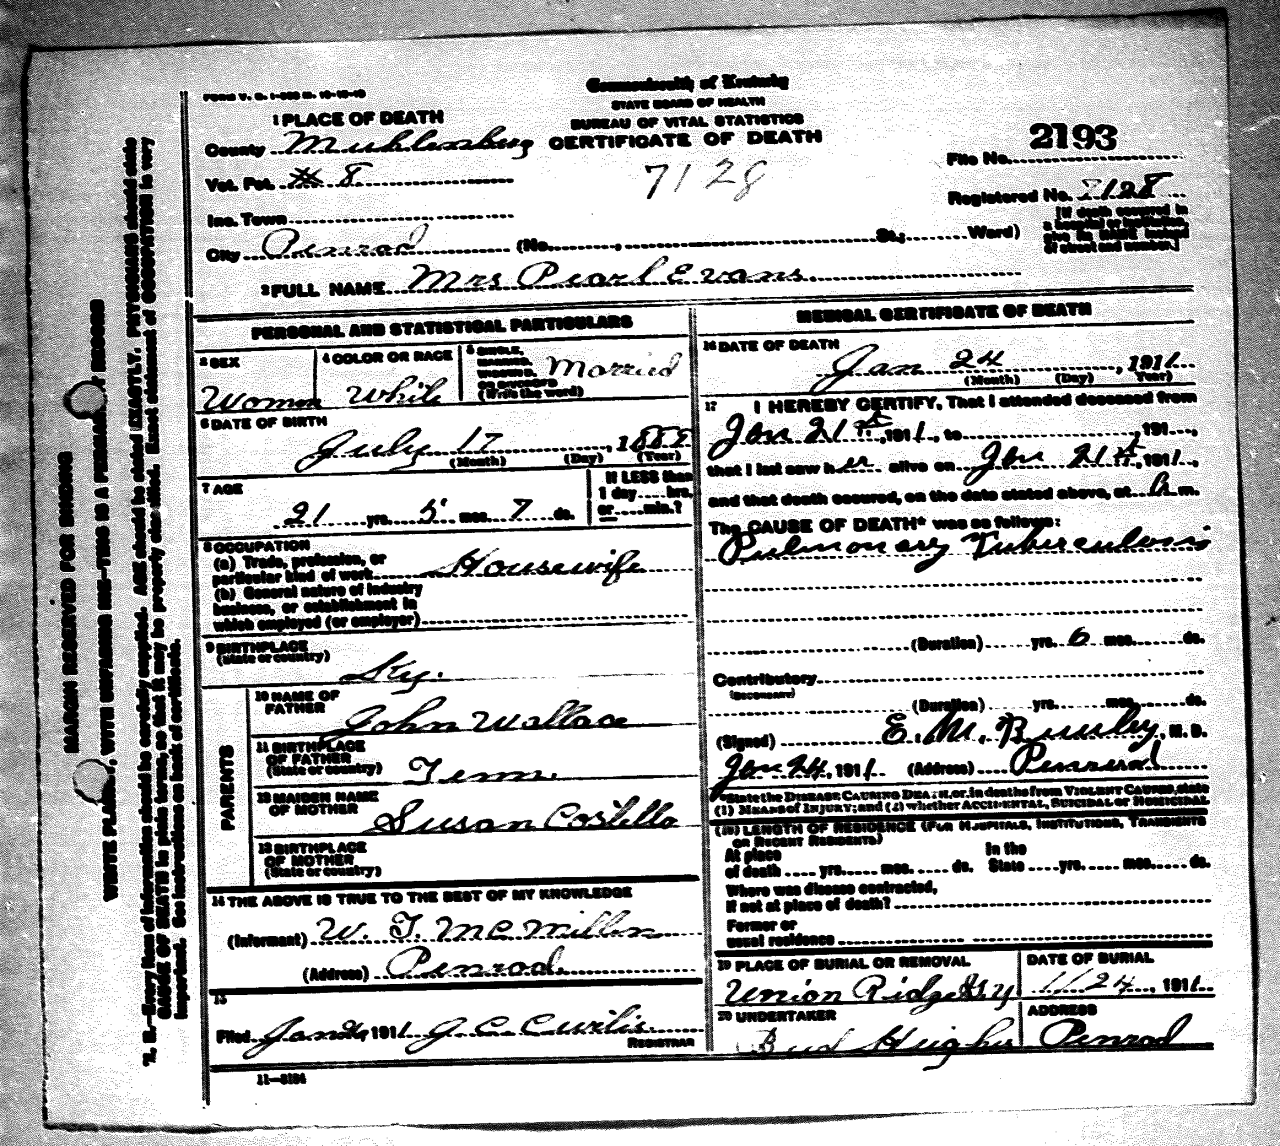 MARGIN RESERVED FOR BINDING
WRITE PLAINLY, WITH UNFADING INK—THIS IS A PERMANENT RECORD
N. B.—Every item of information should be carefully supplied. AGE should be stated EXACTLY. PHYSICIANS should state
CAUSE OF DEATH in plain terms, so that it may be properly classified. Exact statement of OCCUPATION is very
important. See instructions on back of certificate.
Commonwealth of Kentucky
STATE BOARD OF HEALTH
BUREAU OF VITAL STATISTICS
CERTIFICATE OF DEATH
1 PLACE OF DEATH
County Muhlenburg
Vot. Pct. 8
Inc. Town
City Penrod (No. , St.; Ward)
7128
2193
File No.
Registered No. 7128
[If death occurred in
a hospital or institution,
give its NAME instead
of street and number.]
2 FULL NAME Mrs Pearl Evans
PERSONAL AND STATISTICAL PARTICULARS
3 SEX Women
4 COLOR OR RACE White
5 SINGLE,
MARRIED,
WIDOWED,
OR DIVORCED
(Write the word)
Married
6 DATE OF BIRTH
July 17, 1889
(Month) (Day) (Year)
7 AGE
21 yrs. 5 mos. 7 ds.
If LESS than
1 day hrs.
or min.?
8 OCCUPATION
(a) Trade, profession, or
particular kind of work Housewife
(b) General nature of industry
business, or establishment in
which employed (or employer)
9 BIRTHPLACE
(State or country) Ky.
PARENTS
10 NAME OF
FATHER John Wallace
11 BIRTHPLACE
OF FATHER
(State or country) Tenn.
12 MAIDEN NAME
OF MOTHER Susan Costello
13 BIRTHPLACE
OF MOTHER
(State or country)
14 THE ABOVE IS TRUE TO THE BEST OF MY KNOWLEDGE
(Informant) W. T. McMillen
(Address) Penrod.
15
Filed Jan 24, 1911 J. C. Curtis.
REGISTRAR
11—3184
MEDICAL CERTIFICATE OF DEATH
16 DATE OF DEATH
Jan 24, 1911
(Month) (Day) (Year)
17 I HEREBY CERTIFY, That I attended deceased from
Jan 21st, 1911, to , 191 ,
that I last saw her alive on Jan 21st, 1911,
and that death occured, on the date stated above, at m.
The CAUSE OF DEATH* was as follows:
Pulmonary Tuberculosis
(Duration) yrs. 6 mos. ds.
Contributory
(SECONDARY)
(Duration) yrs. mos. ds.
(Signed) E. M. , M. D.
Jan 24, 1911 (Address) Penrod
*State the DISEASE CAUSING DEATH, or, in deaths from VIOLENT CAUSES, state
(1) MEANS OF INJURY; and (2) whether ACCIDENTAL, SUICIDAL or HOMICIDAL
(18) LENGTH OF RESIDENCE (FOR HOSPITALS, INSTITUTIONS, TRANSIENTS
OR RECENT RESIDENTS)
At place
of death yrs. mos. ds.
In the
State yrs. mos. ds.
Where was disease contracted,
If not at place of death?
Former or
usual residence
19 PLACE OF BURIAL OR REMOVAL
Union Ridge Ky
DATE OF BURIAL
1/24, 1911
20 UNDERTAKER
Bud Hughes
ADDRESS
Penrod